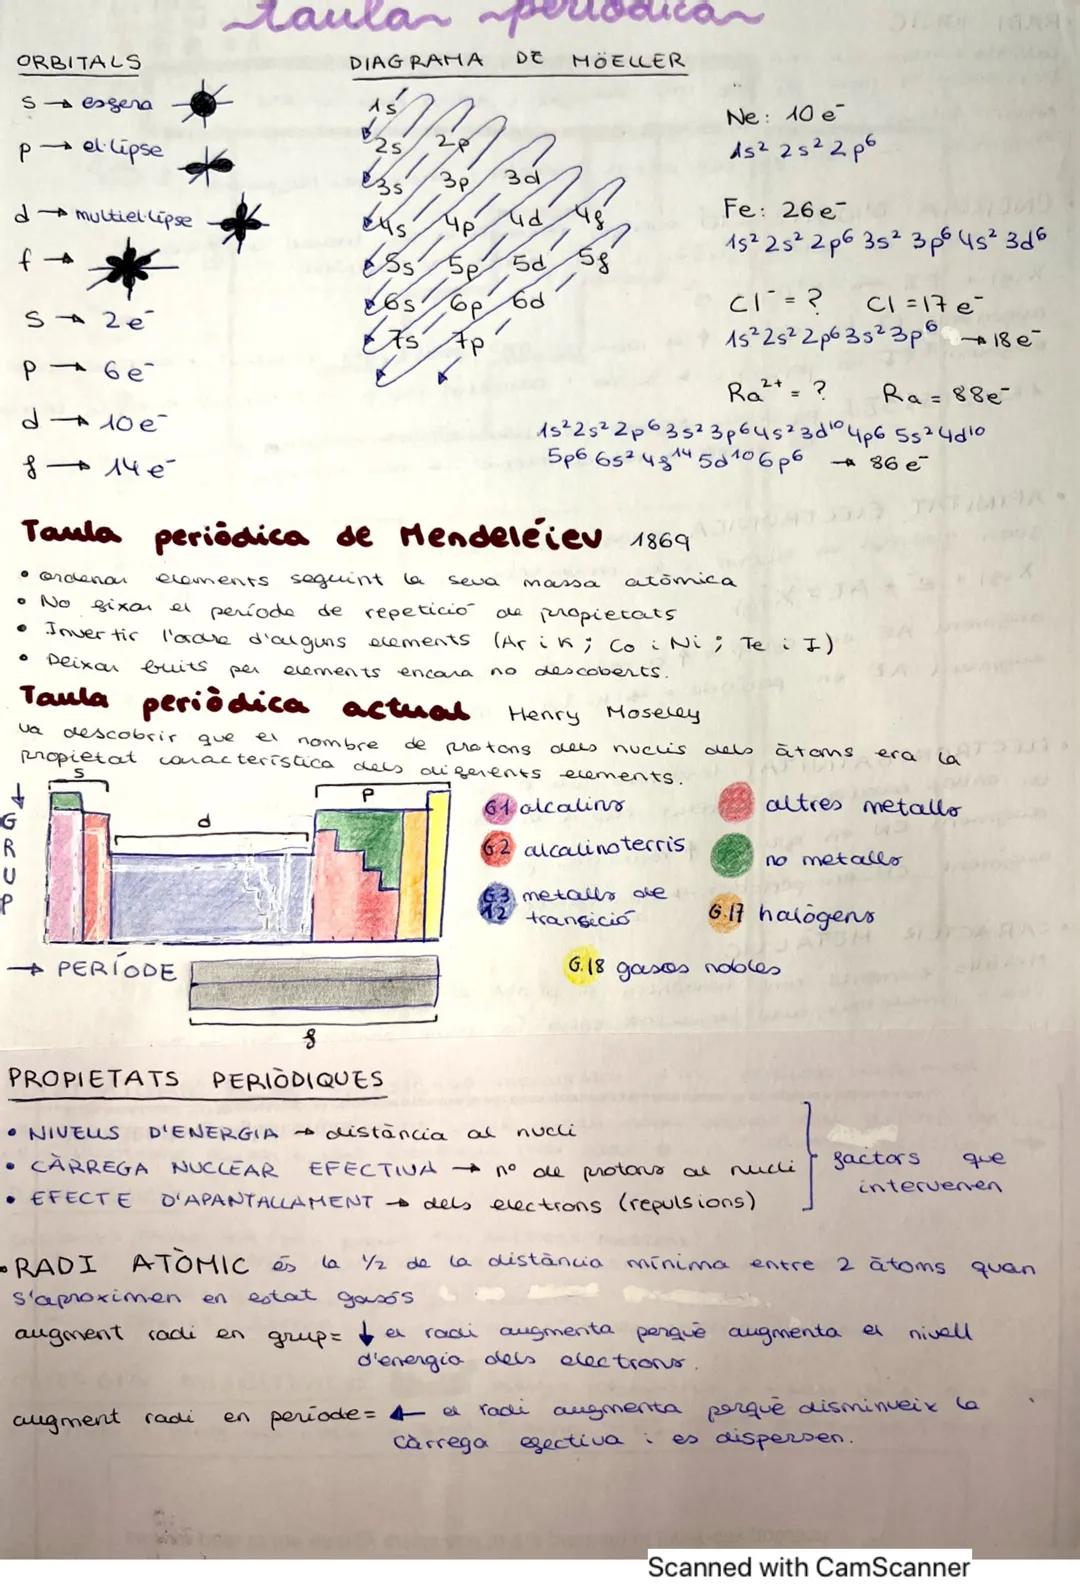 taula periòdica
ORBITALS
s → esfera
p → el·lipse
d → multiel·lipse
f →
s → 2e⁻
p → 6e⁻
d → 10e⁻
f → 14e⁻
DIAGRAMA DE MÖELLER
1s
2s 2p
3s 3p 3d
4s 4p 4d 4f
5s 5p 5d 5f
6s 6p 6d
7s 7p
Ne: 10 e⁻
1s² 2s² 2p⁶
Fe: 26e⁻
1s² 2s² 2p⁶ 3s² 3p⁶ 4s² 3d⁶
Cl⁻ = ? Cl = 17 e⁻
1s² 2s² 2p⁶ 3s² 3p⁶ → 18 e⁻
Ra²⁺ = ? Ra = 88e⁻
1s² 2s² 2p⁶ 3s² 3p⁶ 4s² 3d¹⁰ 4p⁶ 5s² 4d¹⁰
5p⁶ 6s² 4f¹⁴ 5d¹⁰ 6p⁶ → 86 e⁻
Taula periòdica de Mendeléiev 1869
• ordenar elements seguint la seva massa atòmica
• No fixar el període de repetició de propietats
• Invertir l'ordre d'alguns elements (Ar i K; Co i Ni; Te i I)
• Deixar buits per elements encara no descoberts.
Taula periòdica actual Henry Moseley
va descobrir que el nombre de protons dels nuclis dels àtoms era la
propietat característica dels diferents elements.
s
p
d
↓ GRUP
→ PERÍODE
f
G.1 alcalins
G.2 alcalinoterris
G.3 12 metalls de
transició
altres metalls
no metalls
G.17 halògens
G.18 gasos nobles
PROPIETATS PERIÒDIQUES
• NIVELLS D'ENERGIA → distància al nucli
• CÀRREGA NUCLEAR EFECTIVA → nº de protons al nucli
• EFECTE D'APANTALLAMENT → dels electrons (repulsions)
factors que
intervenen
• RADI ATÒMIC és la ½ de la distància mínima entre 2 àtoms quan
s'aproximen en estat gasós
augment radi en grup = ↓ el radi augmenta perquè augmenta el nivell
d'energia dels electrons.
augment radi en període = ← el radi augmenta perquè disminueix la
càrrega efectiva i es dispersen.
Scanned with CamScanner